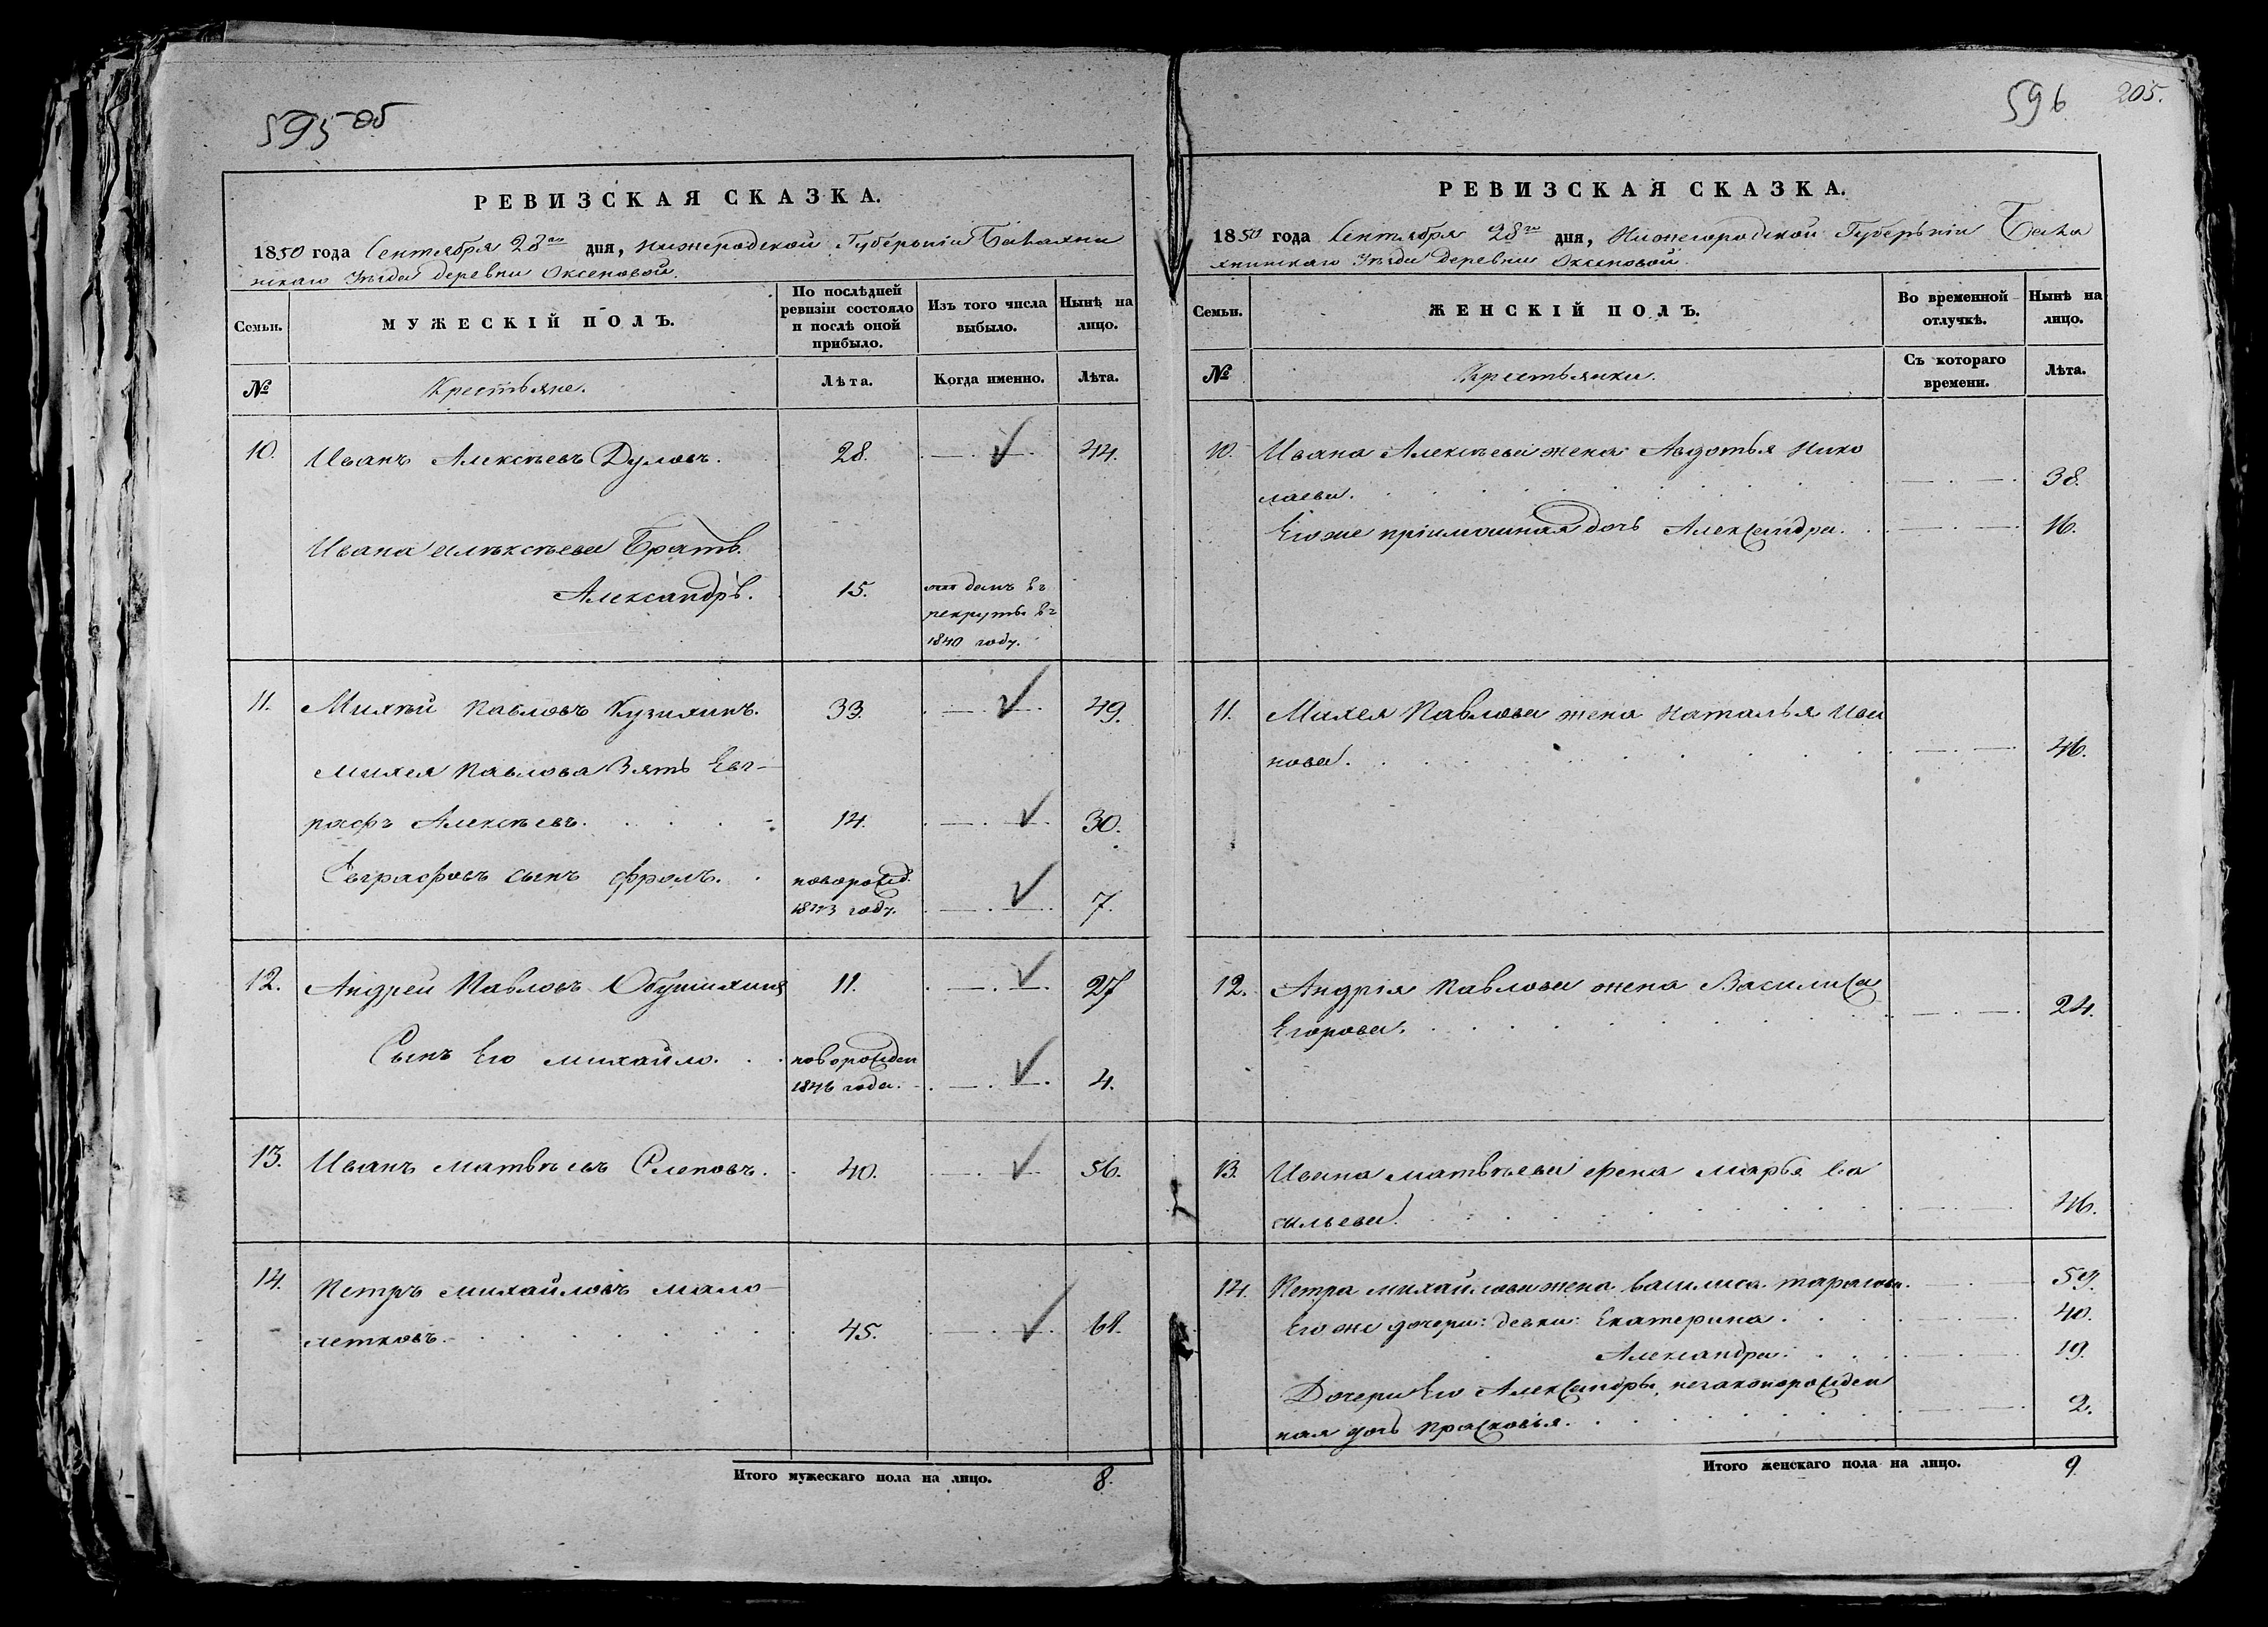 595 об
РЕВИЗСКАЯ СКАЗКА.
1850 года Сентября 28го дня, Нижегородской Губерьніи Балахни
нскаго Уезда деревни Оксеновой.
Семьи.
МУЖЕСКІЙ ПОЛЪ.
По послѣдней ревизіи состояло и послѣ оной прибыло.
Изъ того числа выбыло.
Нынѣ на лицо.
№
Крестьяне.
Лѣта.
Когда именно.
Лѣта.
10. Иванъ Алексѣевъ Дуловъ. 28. 44.
Ивана Алексѣева Братъ.
Александръ. 15. отданъ въ
рекруты въ
1840 году.
11. Михѣй Павловъ 33. 49.
Михея Павлова Зять Евг-
рафъ Алексѣевъ. 14. 30.
Евграфовъ сынъ Фролъ. новорожд.
1843 году. 7.
12. Андрей Павловъ 11. 27
Сынъ Его Михайло. новорожден
1846 года. 4.
13. Иванъ Матвѣевъ Слеповъ. 40. 56.
14. Петръ Михайловъ Мало-
летковъ. 45. 61.
Итого мужескаго пола на лицо. 8.
596 205.
РЕВИЗСКАЯ СКАЗКА.
1850 года Сентября 28го дня, Нижегородской Губерьніи Бала
хнинскаго Уезда Деревни Оксеновой.
Семьи.
ЖЕНСКІЙ ПОЛЪ.
Во временной отлучкѣ.
Нынѣ на лицо.
№
Крестьянки.
Съ котораго времени.
Лѣта.
10. Ивана Алексѣева жена Авдотья Нико
лаева. 38.
Его же пріимошная дочь Александра. 16.
11. Михея Павлова жена Наталья Ива
нова. 46.
12. Андрія Павлова жена Василиса
Егорова. 24.
13. Ивана Матвѣева жена Марья Ва
сильева. 46.
14. Петра Михайлова жена Василиса Тарасова. 59.
Его же дочери: девки: Екатерина. 40.
Александра. 19.
Дочери Его Александры, незаконорожден
ная дочь Прасковья. 2.
Итого женскаго пола на лицо. 9